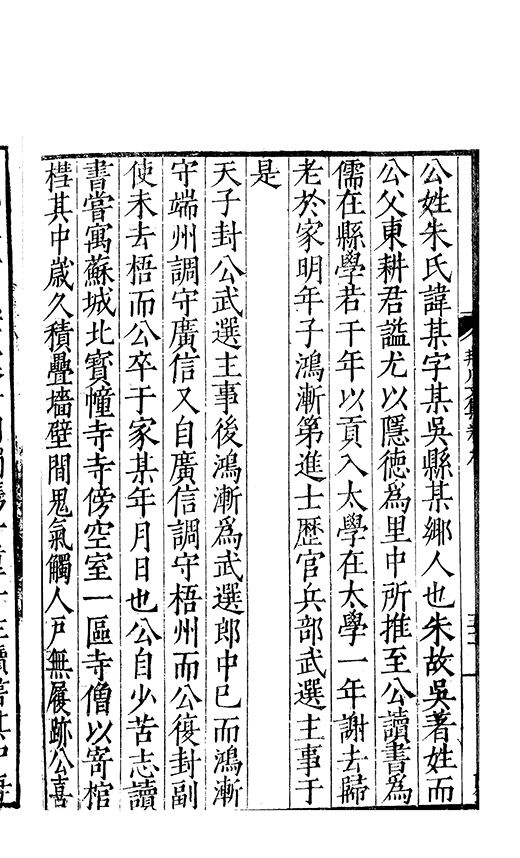 公姓朱氏諱某字某吳縣某鄉人也朱故吳著姓而
公父東耕君謐尤以隱徳為里中所推至公讀書為
儒在縣學若干年以貢入太學在太學一年謝去歸
老於家明年子鴻漸第進士歷官兵部武選主事于
是
天子封公武選主事後鴻漸爲武選郎中已而鴻漸
守端州調守廣信又自廣信調守梧州而公復封副
使未去梧而公卒于家某年月日也公自少苦志讀
書嘗寓蘇城北寳幢寺寺傍空室一區寺僧以寄棺
槥其中歲久積疊墻壁間鬼氣觸人戸無屨跡公喜